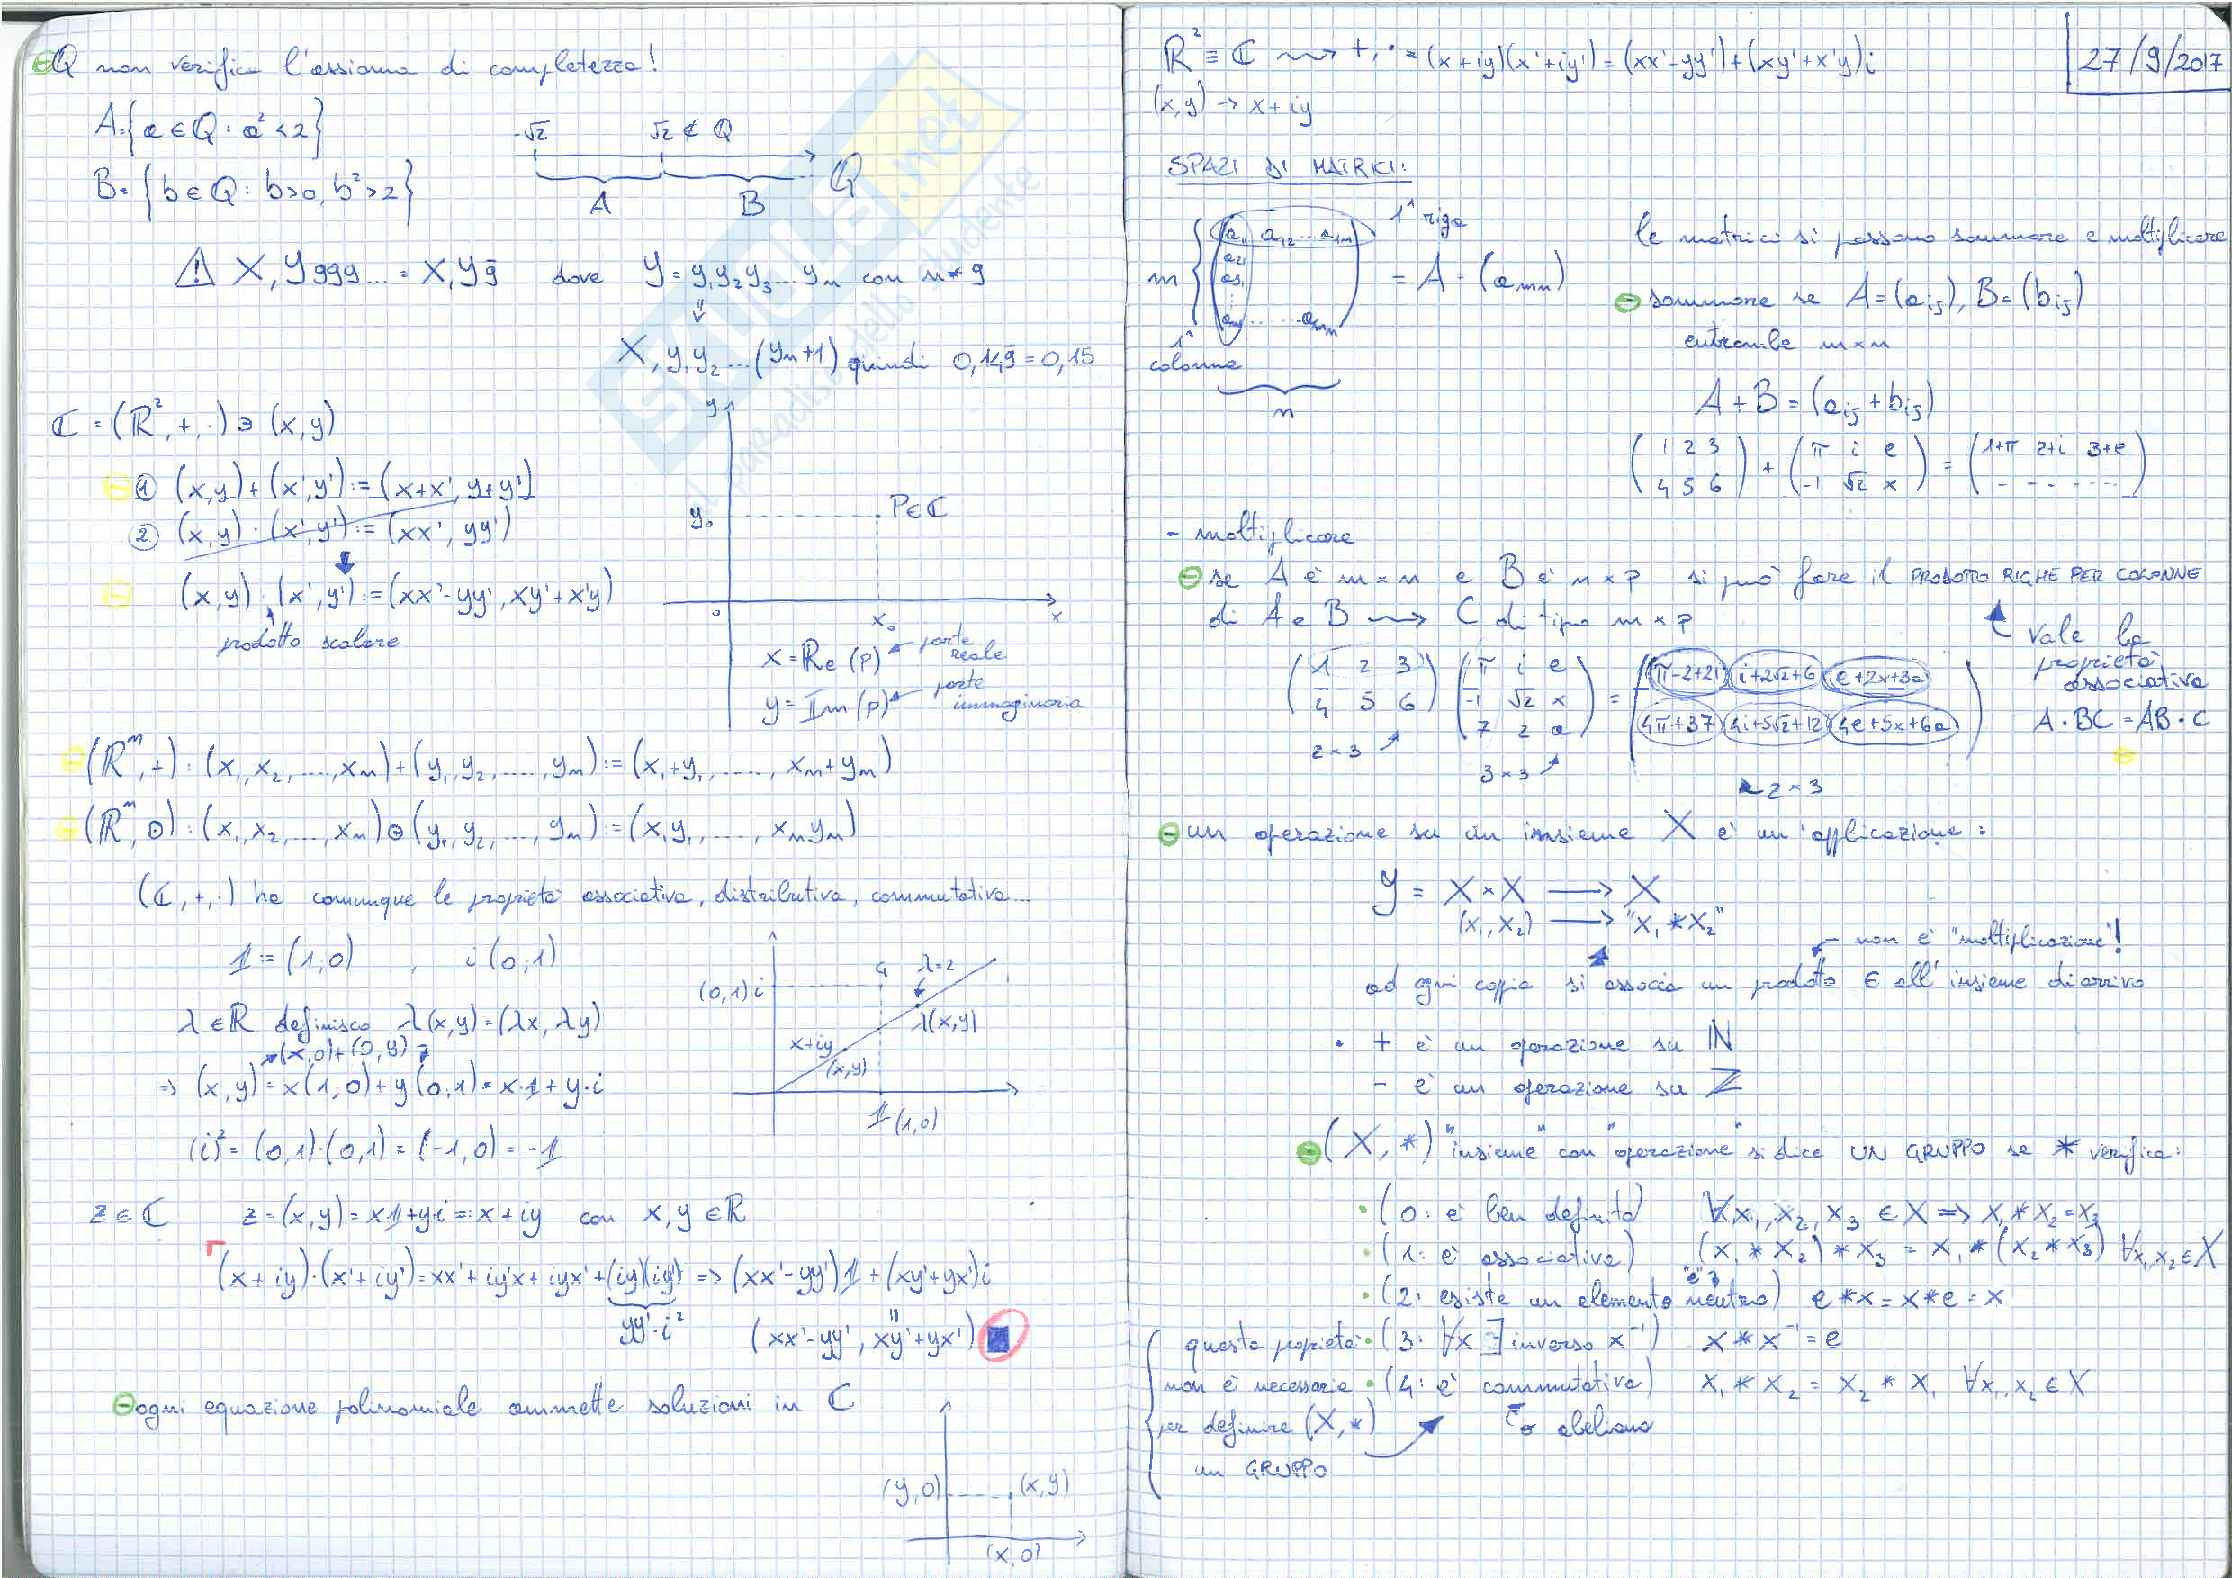 Q non verifica l'assioma di completezza!
A={a ∈ Q : a² < 2}
B = {b ∈ Q : b>0, b² > 2}
-√2 √2 ∉ Q
A B Q
⚠ X,Y999... = X,Y9̄ dove Y = y₁y₂y₃...yₙ con n ≠ 9
⇓
X,y₁y₂...(yₙ+1) quindi 0,149̄ = 0,15
ℂ = (ℝ², +, ·) ∋ (x,y)
① (x,y)+(x',y') := (x+x', y+y')
② (x,y)·(x',y') := (xx', yy')
(x,y)·(x',y') := (xx'-yy', xy'+x'y)
prodotto scalare
y
y₀ P∈ℂ
0 x₀ x
x = Re(P) parte reale
y = Im(P) parte immaginaria
(ℝⁿ,+) : (x₁,x₂,....,xₙ)+(y₁,y₂,....,yₙ) := (x₁+y₁,....., xₙ+yₙ)
(ℝⁿ,⊙) : (x₁,x₂,...,xₙ)⊙(y₁,y₂,...,yₙ) := (x₁y₁,...., xₙyₙ)
(ℂ,+,·) ha comunque le proprietà associativa, distributiva, commutativa...
1 = (1,0) , i(0,1)
λ∈ℝ definisco λ(x,y) = (λx, λy)
(x,0)+(0,y)
⇒ (x,y) = x(1,0)+y(0,1) = x·1+y·i
(i)² = (0,1)·(0,1) = (-1,0) = -1
(0,1) i λ=2
λ(x,y)
x+iy
(x,y)
1 (1,0)
z∈ℂ z = (x,y) = x1+y·i =: x+iy con x,y∈ℝ
(x+iy)·(x'+iy') = xx'+iy'x+iyx'+(iy)(iy') ⇒ (xx'-yy')1+(xy'+yx')i
yy'·i² (xx'-yy', xy'+yx')
ogni equazione polinomiale ammette soluzioni in ℂ
(y,0) (x,y)
(x,0)
ℝ² ≡ ℂ ⇝ +, · = (x+iy)(x'+iy') = (xx'-yy')+(xy'+x'y)i
27/9/2017
(x,y) → x+iy
SPAZI DI MATRICI:
1ª riga
m (a₁ a₁₂ ... a₁ₙ
a₂₁
a₃₁
aₘ₁ ...... aₘₙ) = A · (aₘₙ)
1ª colonna
n
le matrici si possono sommare e moltiplicare
sommare se A = (aᵢⱼ), B = (bᵢⱼ)
entrambe m×n
A+B = (aᵢⱼ+bᵢⱼ)
(1 2 3 / 4 5 6) + (π i e / -1 √2 x) = (1+π 2+i 3+e / - - - ....)
- moltiplicare
se A è m×n e B è n×p si può fare il PRODOTTO RIGHE PER COLONNE
di A e B ⇝ C di tipo m×p
Vale la proprietà associativa
A·BC = AB·C
(1 2 3 / 4 5 6) (π i e / -1 √2 x / 7 2 a) = (π-2+21 i+2√2+6 e+2x+3a / 4π+37 4i+5√2+12 4e+5x+6a)
2×3 3×3 2×3
un operazione su un insieme X è un'applicazione:
Y = X×X → X
(x₁,x₂) → "x₁*x₂"
non è "moltiplicazione"!
ad ogni coppia si associa un prodotto ∈ all'insieme di arrivo
• + è un operazione su ℕ
- è un operazione su ℤ
(X,*) "insieme" con "operazione" si dice UN GRUPPO se * verifica:
• (0: è ben definita) ∀x₁,x₂,x₃ ∈ X ⇒ x₁*x₂=x₃
• (1: è associativa) (x₁*x₂)*x₃ = x₁*(x₂*x₃) ∀x₁,x₂∈X
• (2: esiste un elemento neutro) "e" e*x = x*e = x
• (3: ∀x ∃ inverso x⁻¹) x*x⁻¹ = e
• (4: è commutativa) x₁*x₂ = x₂*x₁ ∀x₁,x₂∈X
questa propietà non è necessaria per definire (X,*) un GRUPPO
o abeliano
SKUOLA.net
il paradiso dello studente